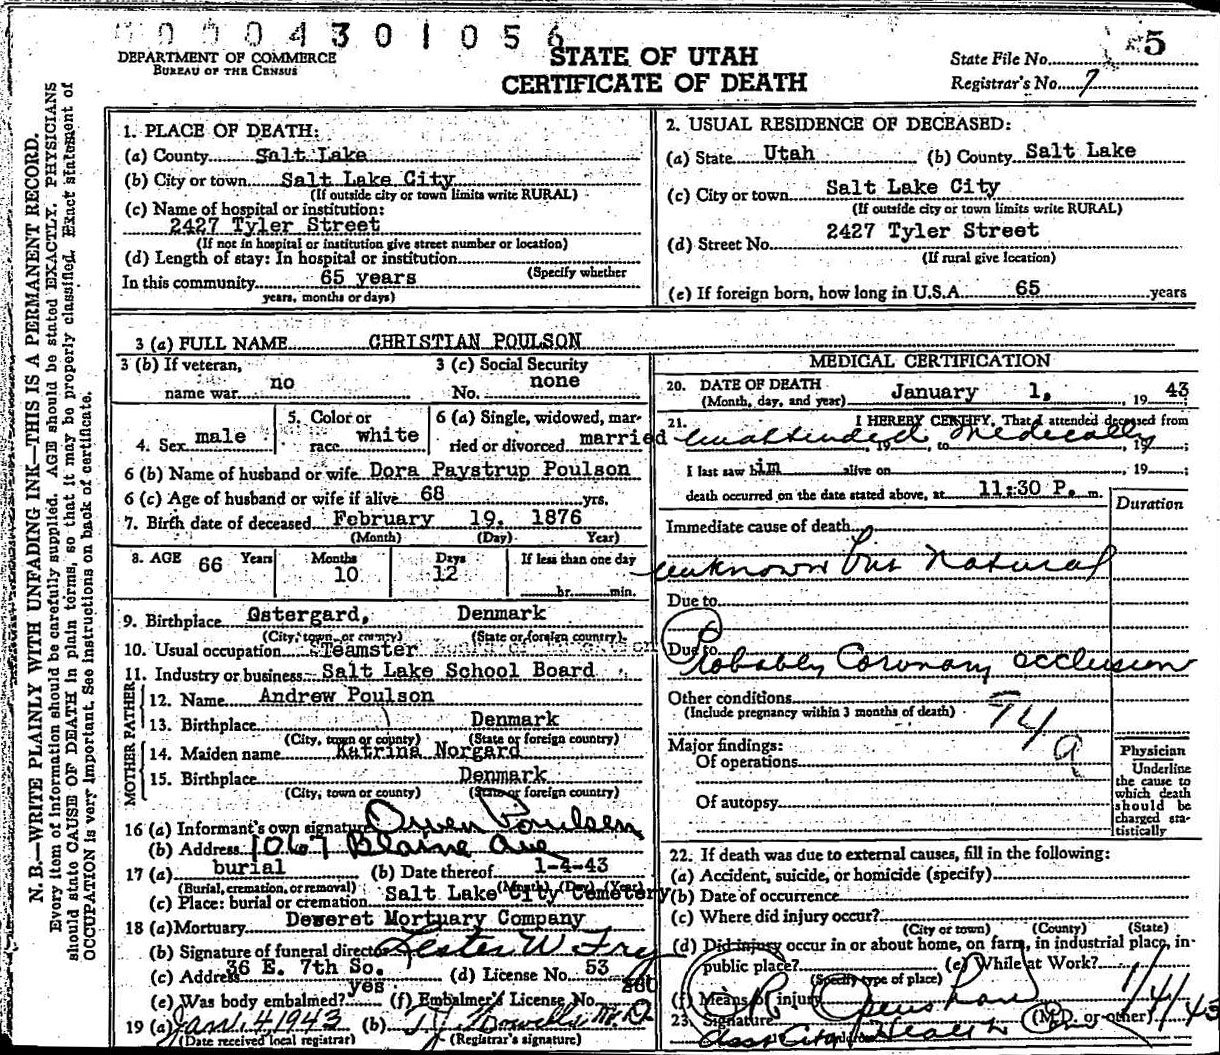 00004301056
DEPARTMENT OF COMMERCE
BUREAU OF THE CENSUS
STATE OF UTAH
CERTIFICATE OF DEATH
State File No. 5
Registrar's No. 7
N. B.—WRITE PLAINLY WITH UNFADING INK—THIS IS A PERMANENT RECORD.
Every item of information should be carefully supplied. AGE should be stated EXACTLY. PHYSICIANS
should state CAUSE OF DEATH in plain terms, so that it may be properly classified. Exact statement of
OCCUPATION is very important. See instructions on back of certificate.
1. PLACE OF DEATH:
(a) County Salt Lake
(b) City or town Salt Lake City
(If outside city or town limits write RURAL)
(c) Name of hospital or institution:
2427 Tyler Street
(If not in hospital or institution give street number or location)
(d) Length of stay: In hospital or institution
(Specify whether
In this community 65 years
years, months or days)
2. USUAL RESIDENCE OF DECEASED:
(a) State Utah (b) County Salt Lake
(c) City or town Salt Lake City
(If outside city or town limits write RURAL)
(d) Street No. 2427 Tyler Street
(If rural give location)
(e) If foreign born, how long in U.S.A. 65 years
3 (a) FULL NAME CHRISTIAN POULSON
3 (b) If veteran,
name war no
3 (c) Social Security
No. none
4. Sex male
5. Color or
race white
6 (a) Single, widowed, mar-
ried or divorced married
6 (b) Name of husband or wife Dora Paystrup Poulson
6 (c) Age of husband or wife if alive 68 yrs.
7. Birth date of deceased February 19. 1876
(Month) (Day) Year)
8. AGE 66 Years Months 10 Days 12 If less than one day
hr. min.
9. Birthplace Østergard, Denmark
(City, town or county) (State or foreign country)
10. Usual occupation Teamster
11. Industry or business Salt Lake School Board
MOTHER FATHER
12. Name Andrew Poulson
13. Birthplace Denmark
(City, town or county) (State or foreign country)
14. Maiden name Katrina Norgard
15. Birthplace Denmark
(City, town or county) (State or foreign country)
16 (a) Informant's own signature Owen Poulsen
(b) Address 1067 Blaine Ave
17 (a) burial (b) Date thereof 1-4-43
(Burial, cremation, or removal) (Month) (Day) (Year)
(c) Place: burial or cremation Salt Lake City Cemetery
18 (a) Mortuary Deseret Mortuary Company
(b) Signature of funeral director Lester W Fry
(c) Address 36 E. 7th So. (d) License No. 53
(e) Was body embalmed? yes (f) Embalmer's License No.
19 (a) Jan. 4 1943 (b) T. J. Howells M.D.
(Date received local registrar) (Registrar's signature)
MEDICAL CERTIFICATION
20. DATE OF DEATH
(Month, day, and year) January 1, 19 43
21. I HEREBY CERTIFY, That I attended deceased from
unattended medically, 19 , to , 19 ;
I last saw him alive on , 19 ;
death occurred on the date stated above, at 11:30 P. m.
Duration
Immediate cause of death
unknown but Natural
Due to
Due to
Probably Coronary occlusion
Other conditions
(Include pregnancy within 3 months of death)
94 a
Major findings:
Of operations
Of autopsy
Physician
Underline
the cause to
which death
should be
charged sta-
tistically
22. If death was due to external causes, fill in the following:
(a) Accident, suicide, or homicide (specify)
(b) Date of occurrence
(c) Where did injury occur?
(City or town) (County) (State)
(d) Did injury occur in or about home, on farm, in industrial place, in-
public place? (e) While at Work?
(Specify type of place)
(f) Means of injury
23. Signature (M.D. or other) 1/4/43
Asst City Health